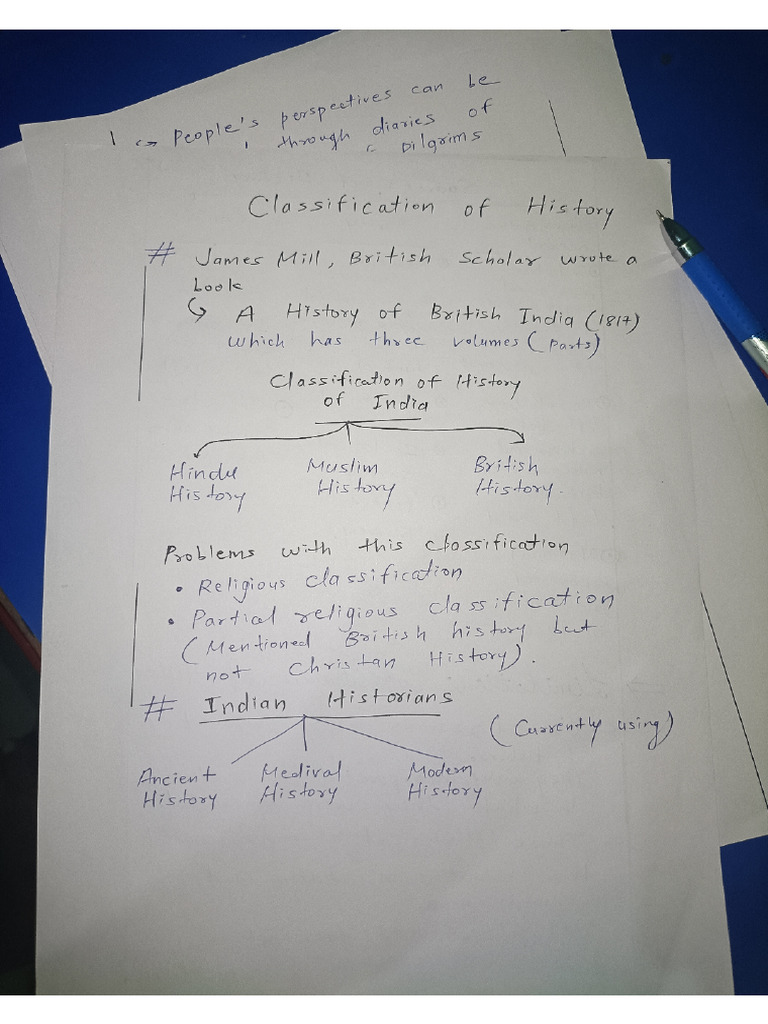 1 → People's perspectives can be
through diaries of
pilgrims
Classification of History
# James Mill, British Scholar wrote a
book
↳ A History of British India (1817)
which has three volumes (parts)
Classification of History
of India
Hindu History
Muslim History
British History.
Problems with this classification
• Religious classification
• Partial religious classification
(Mentioned British history but
not Christan History).
# Indian Historians
(Currently using)
Ancient History
Medival History
Modern History